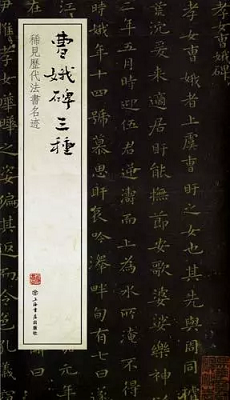 孝女曹娥者上虞曹盱之女也其先與周同
荒沉爰来適居盱能撫節安歌婆娑樂神
二年五月時迎伍君逆濤而上為水所淹不得
娥年十四號慕思盱哀吟澤畔旬有七日
曹娥碑三種
稀見歷代法書名迹
上海書店出版社
女曄曄之姿偏其返而令色孔儀